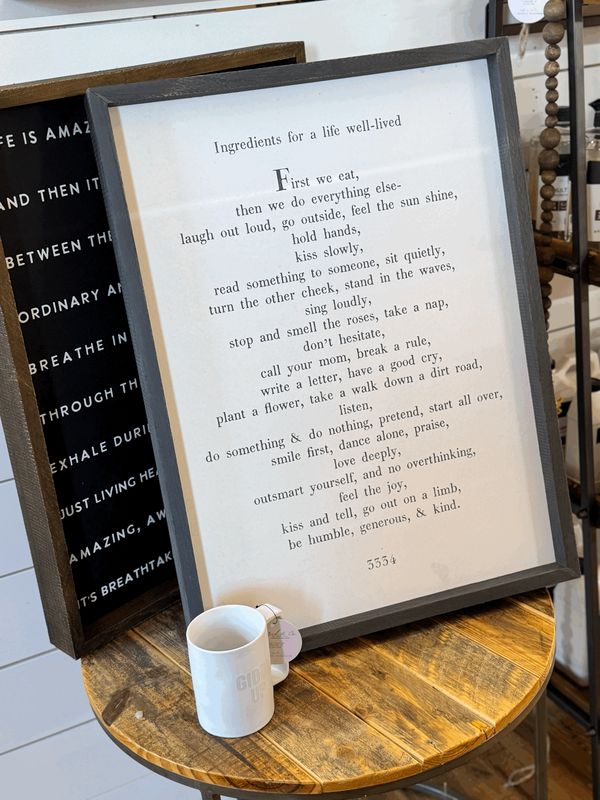 FE IS AMAZ
AND THEN IT
BETWEEN THE
ORDINARY AN
BREATHE IN
THROUGH TH
EXHALE DURI
JUST LIVING HEA
AMAZING, AW
IT'S BREATHTAK
Ingredients for a life well-lived
First we eat,
then we do everything else-
laugh out loud, go outside, feel the sun shine,
hold hands,
kiss slowly,
read something to someone, sit quietly,
turn the other cheek, stand in the waves,
sing loudly,
stop and smell the roses, take a nap,
don't hesitate,
call your mom, break a rule,
write a letter, have a good cry,
plant a flower, take a walk down a dirt road,
listen,
do something & do nothing, pretend, start all over,
smile first, dance alone, praise,
love deeply,
outsmart yourself, and no overthinking,
feel the joy,
kiss and tell, go out on a limb,
be humble, generous, & kind.
3334